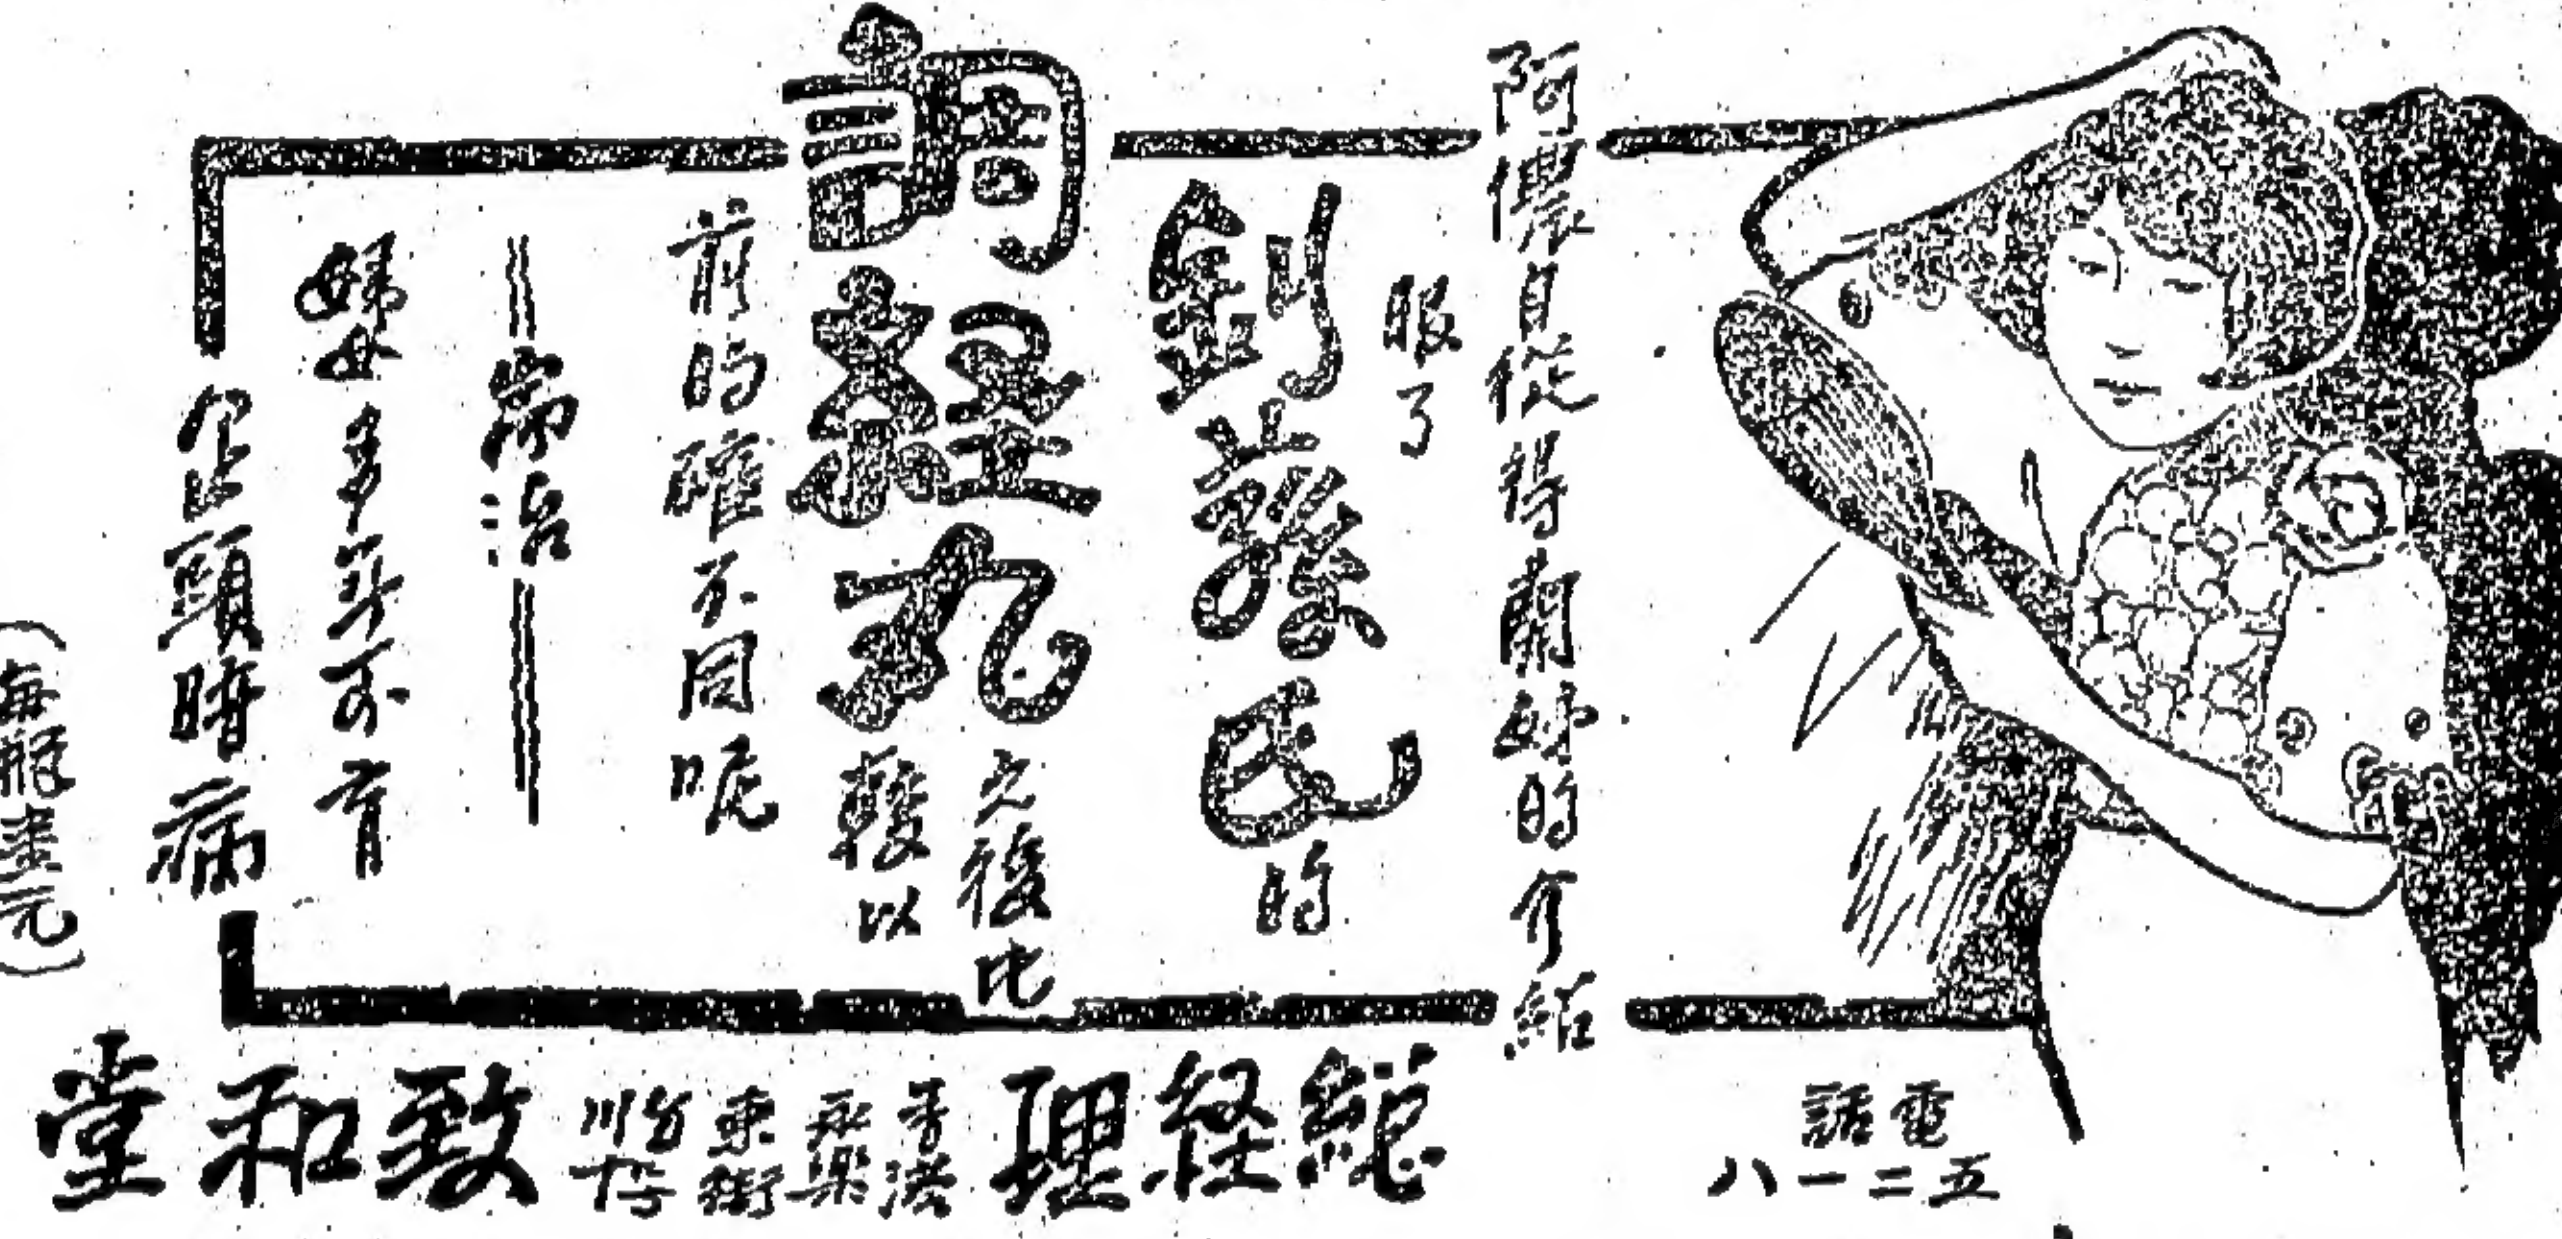 阿儂自從得蘭妹的介紹
服了
劉蔡氏的
調經丸之後比
較以
前的確不同呢
常治
婦女多年不育
企止頭暗病
(每瓶壹元)
電話
五二一八
總經理
香港
永樂
東街
致和堂